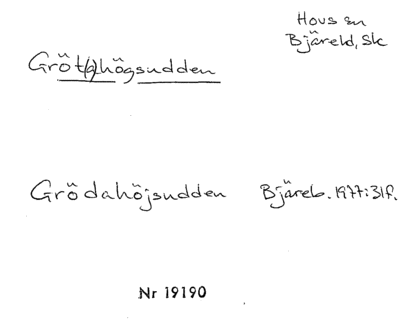 Hovs sn
Bjäreld, Sk
Gröt(a)högsudden
Grödahöjsudden Bjäreb. 1977:31f.
Nr 19190